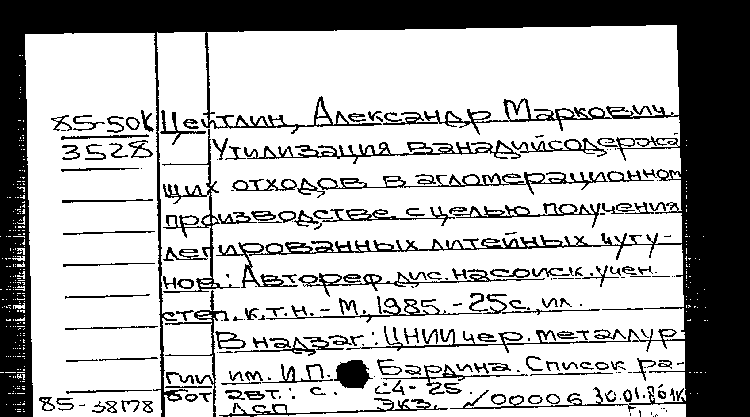 85-50К Цейтлин, Александр Маркович.
3528 Утилизация ванадийсодержа
щих отходов в агломерационном
производстве с целью получения
легированных литейных чугу-
нов: Автореф. дис. на соиск. учен.
степ. к.т.н. - М, 1985. - 25 с, ил.
В надзаг.: ЦНИИ чер. металлур-
гии им. И.П. Бардина. Список ра-
бот авт.: с. с4- 25.
85-38178 ДСП экз. №00006 30.01.86